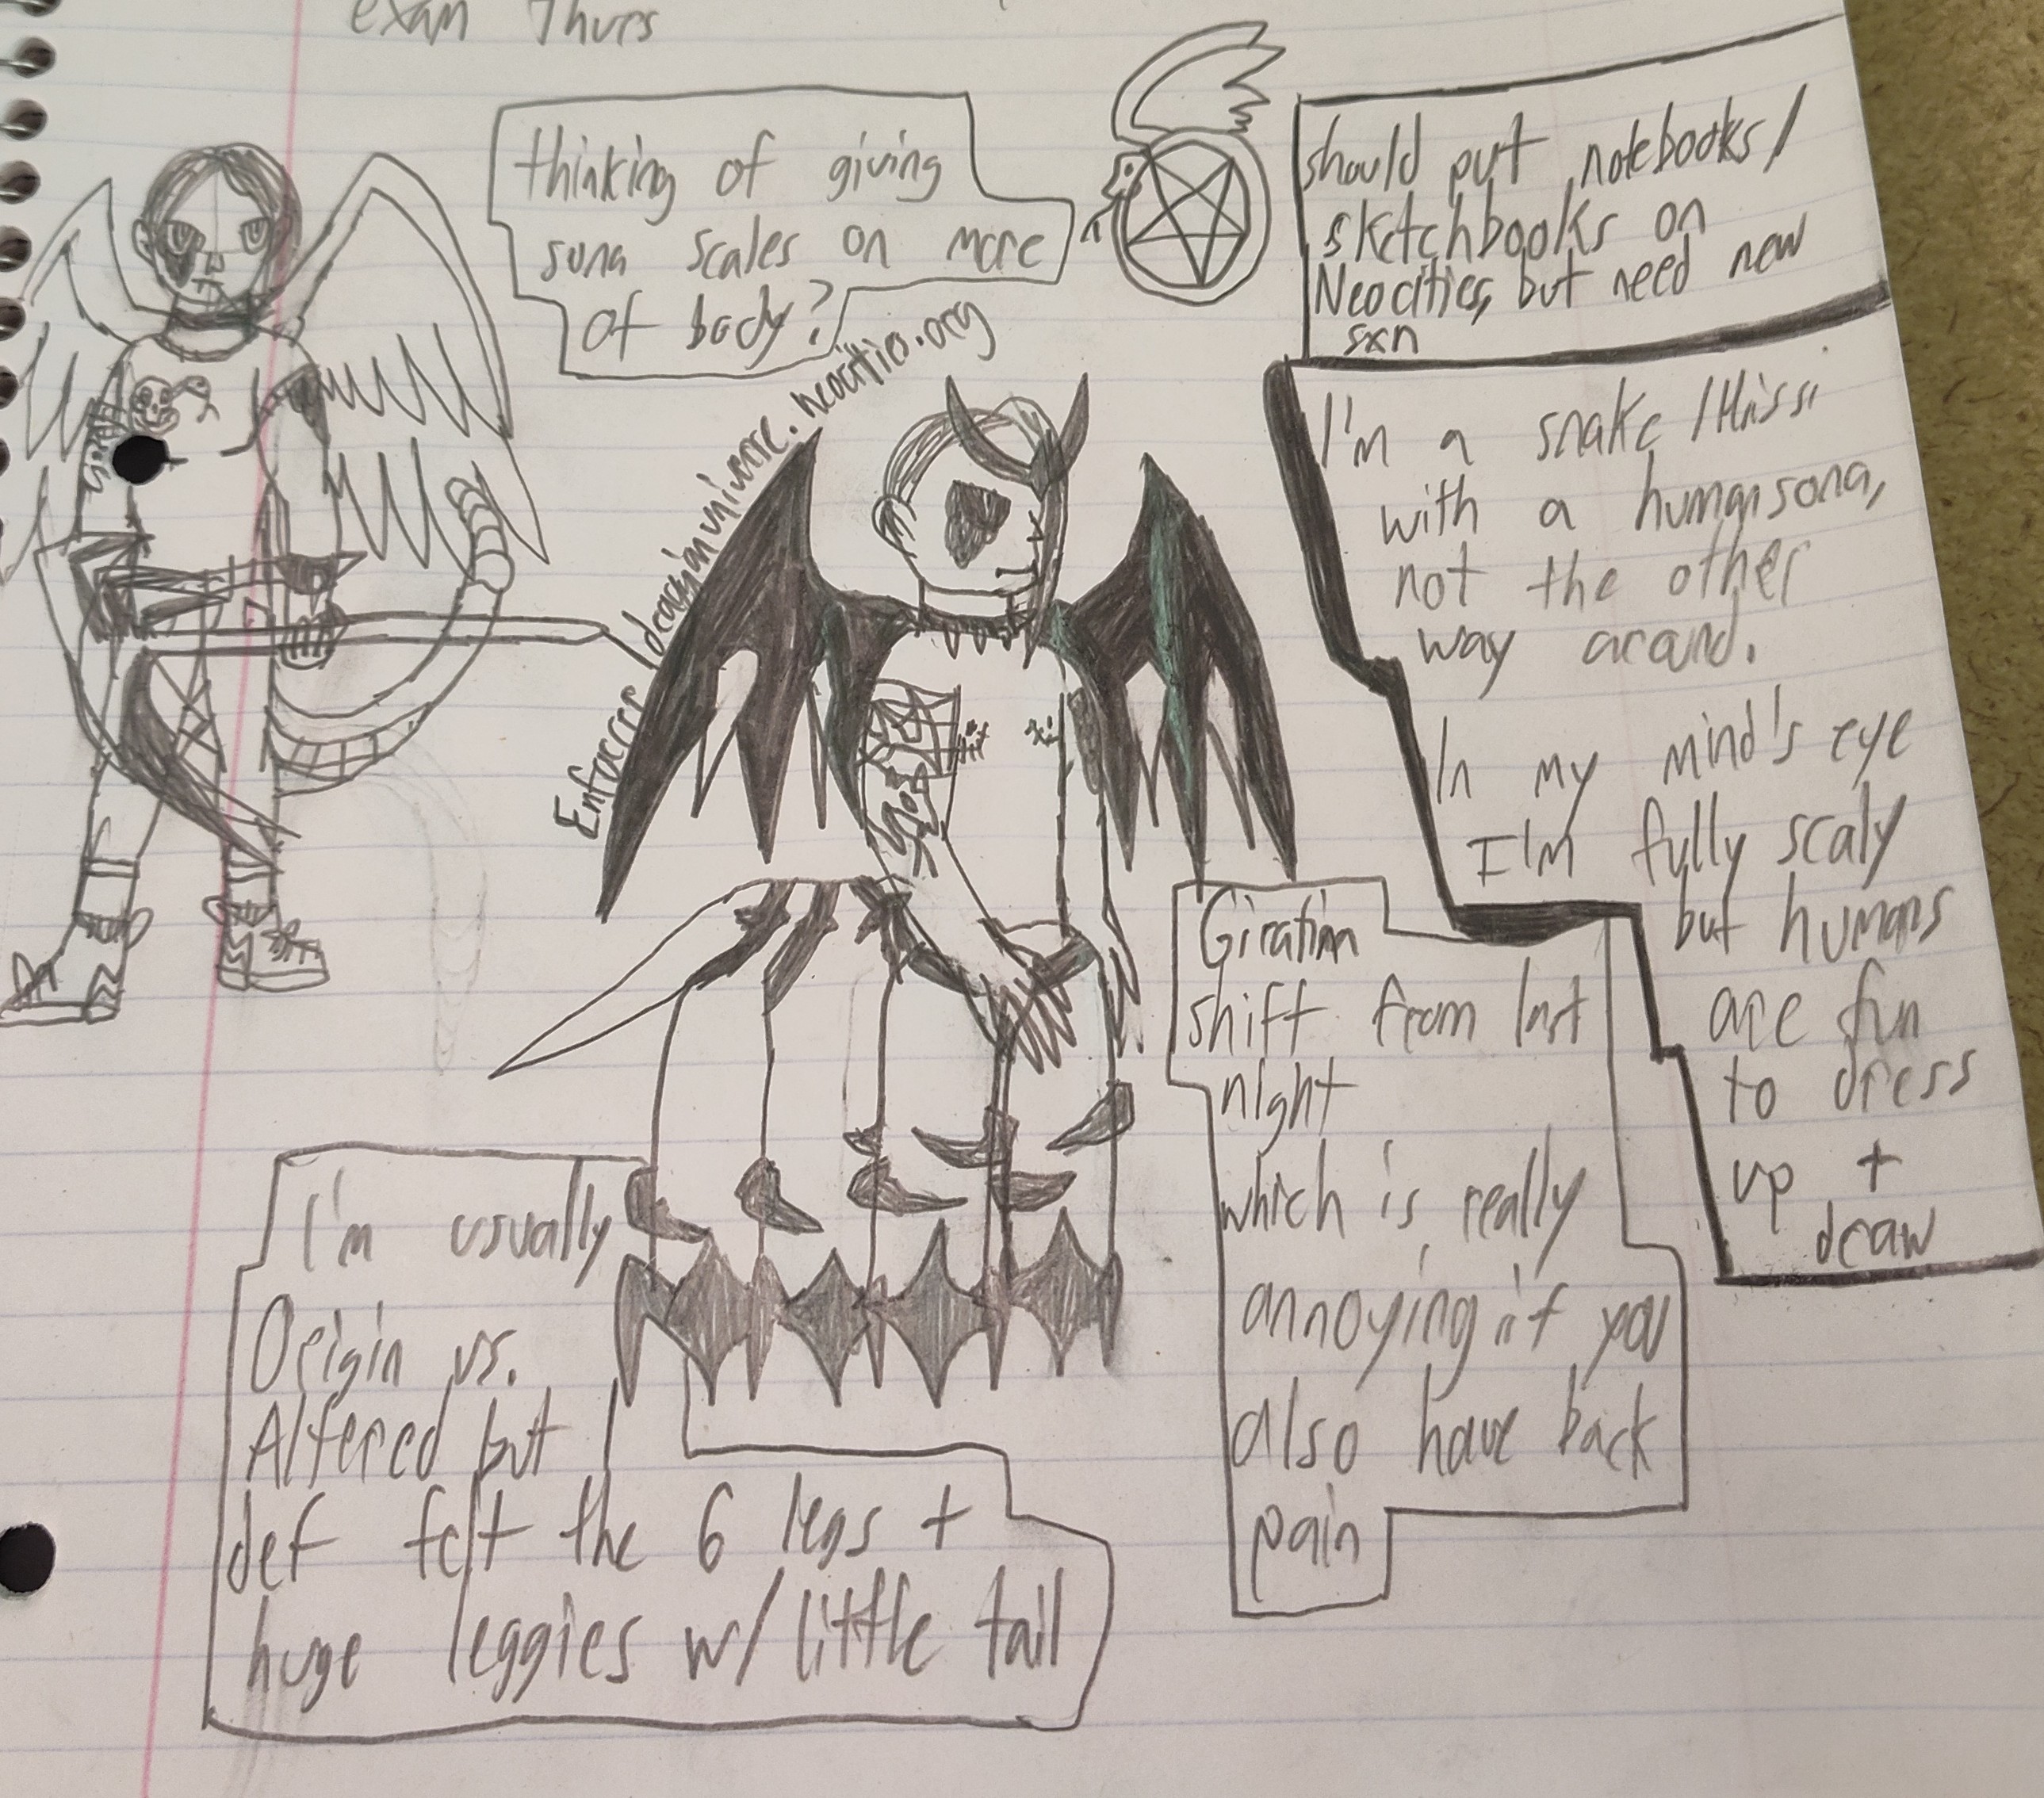 exam Thurs
thinking of giving
sona scales on more
of body?
should put notebooks/
sketchbooks on
Neocities, but need new
sxn
I'm a snake /Hiss\
with a humansona,
not the other
way around.
In my mind's eye
I'm fully scaly
but humans
are fun
to dress
up +
draw
Enforcer
dracginuniverse.neocities.org
Giratina
shift from last
night
which is really
annoying if you
also have back
pain
I'm usually
Origin vs.
Altered but
def felt the 6 legs +
huge leggies w/ little tail